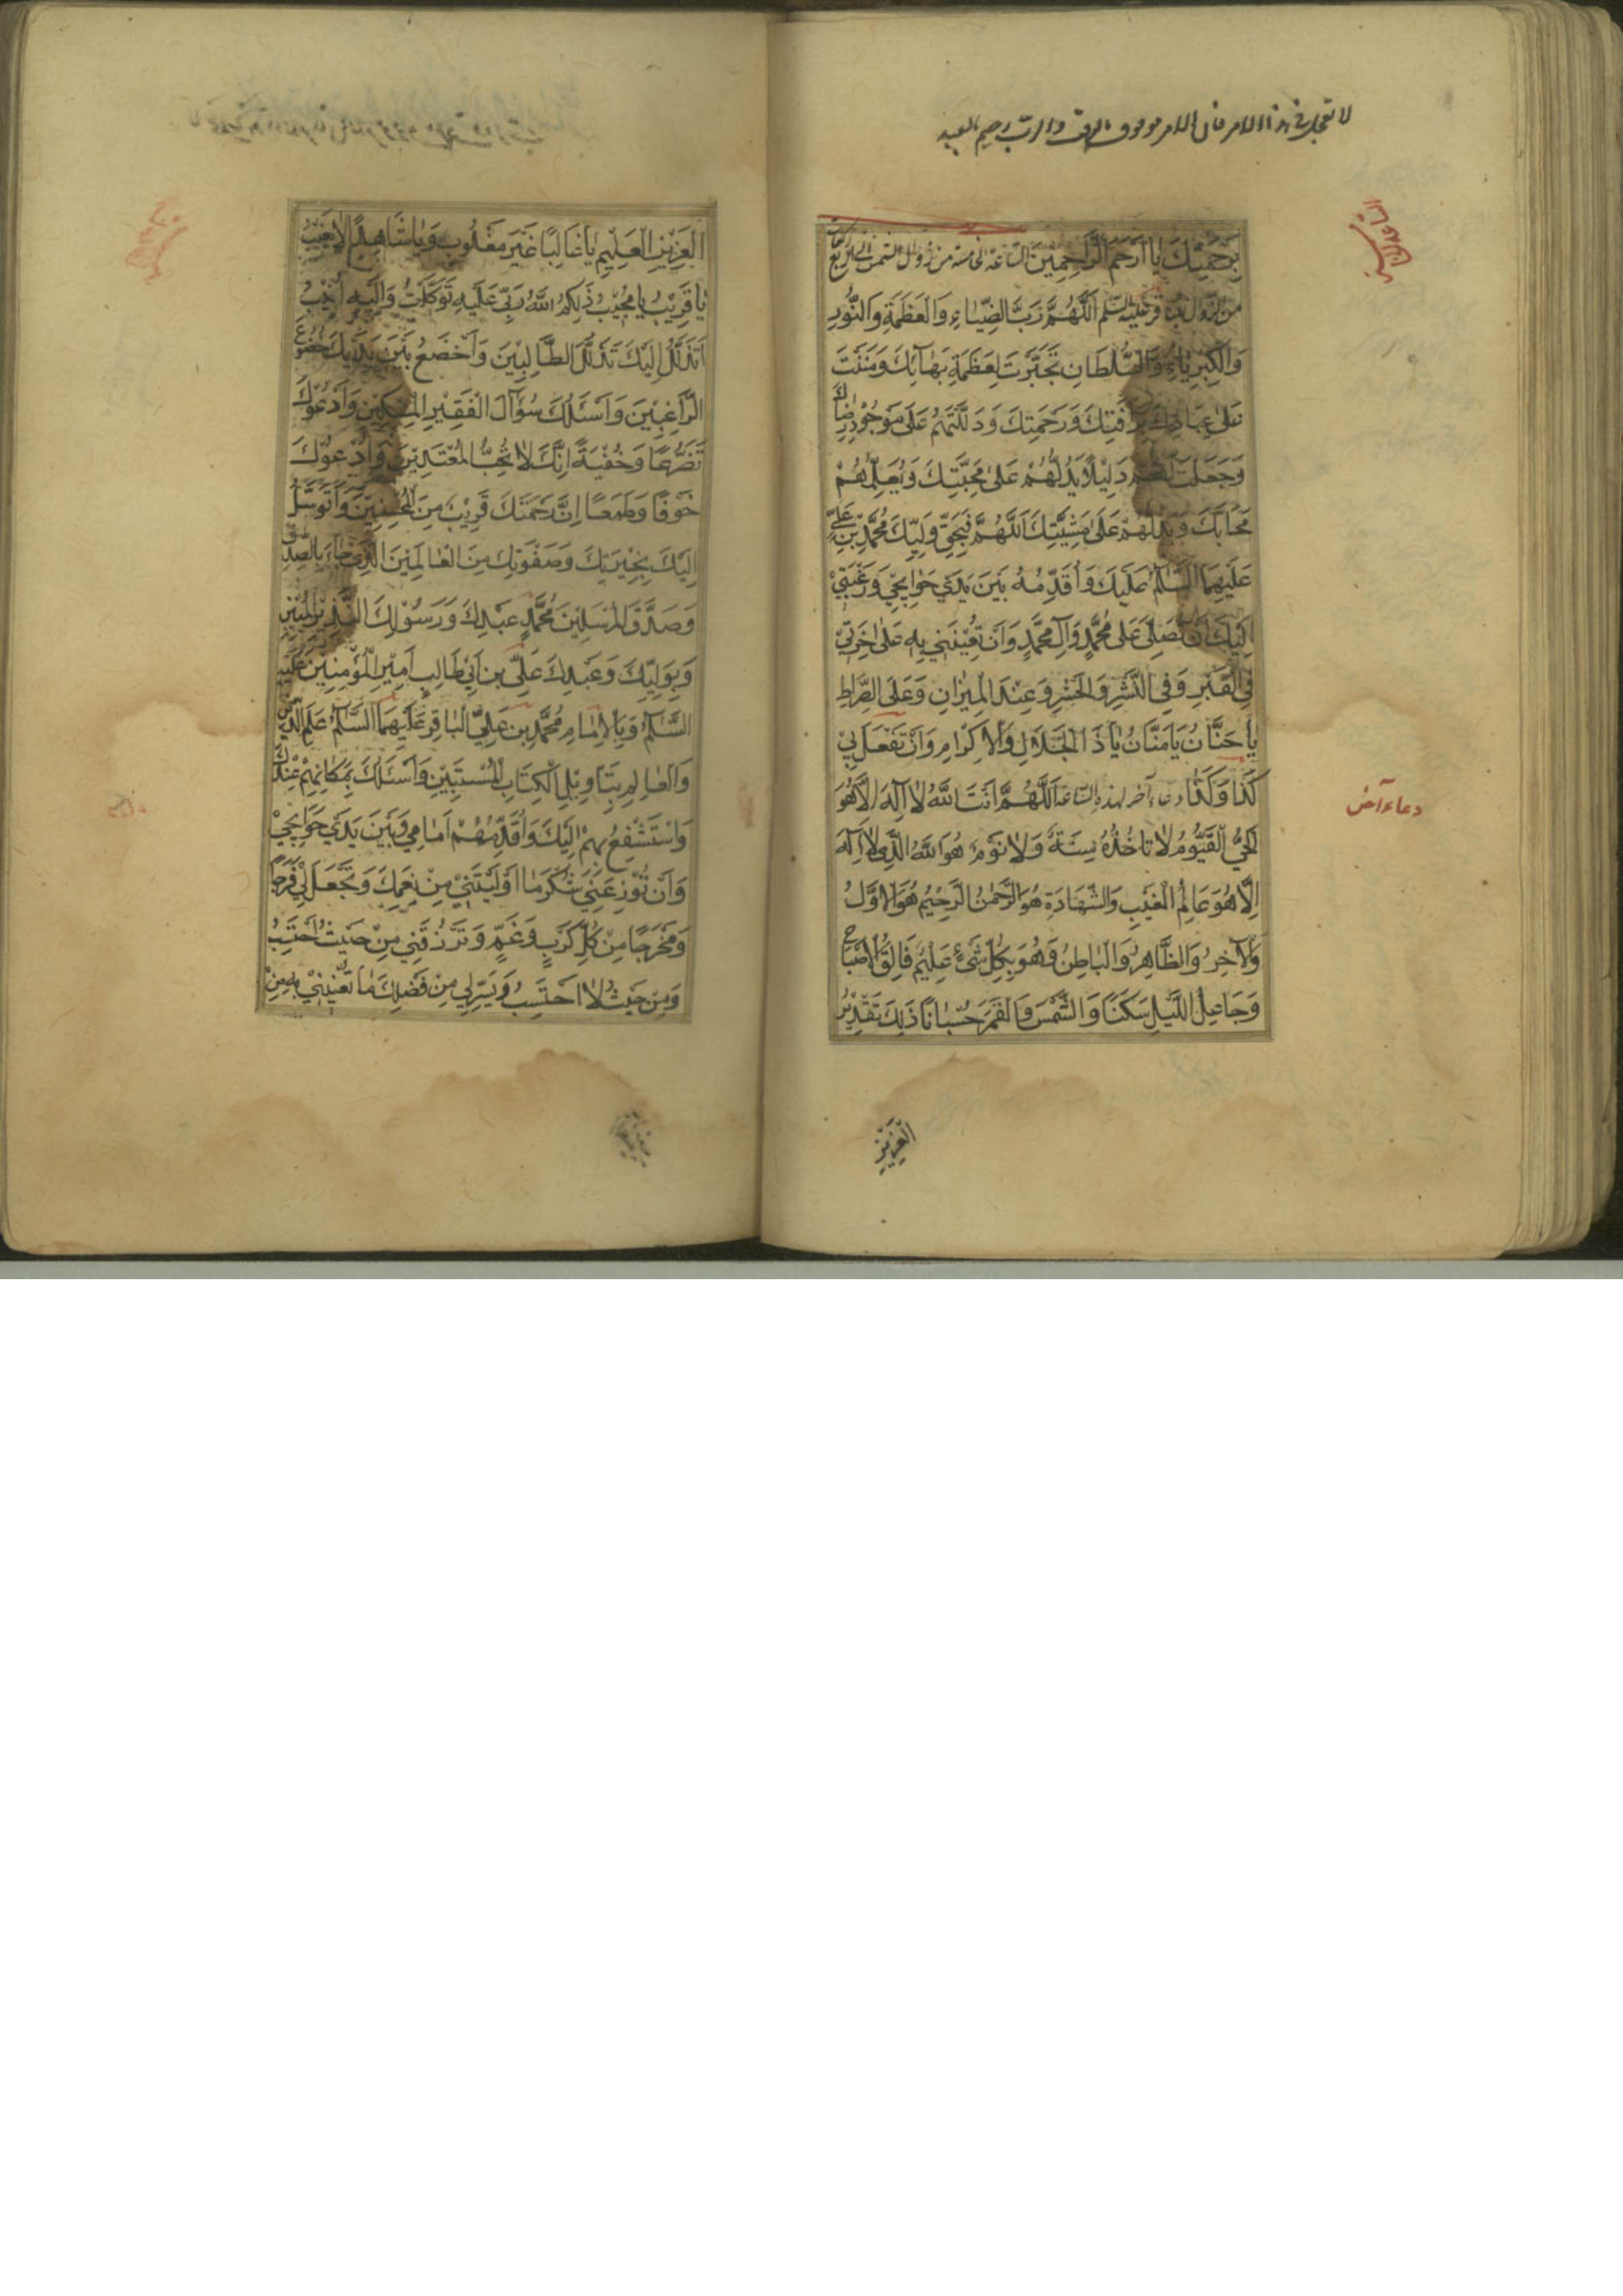 لا تعجل في هذا الامر فان الامر موقوف بالوقت والرب رحيم بالعبيد
بِرَحْمَتِكَ يَا أَرْحَمَ الرَّاحِمِينَ الساعة الخامسة من زوال الشمس الى اربع ركعات
من الزوال للباقر عليه السلم اَللّٰهُمَّ رَبَّ الضِّيَاءِ وَالْعَظَمَةِ وَالنُّورِ
وَالْكِبْرِيَاءِ وَالسُّلْطَانِ تَجَبَّرْتَ بِعَظَمَةِ بَهَائِكَ وَمَنَنْتَ
عَلَى عِبَادِكَ بِرَأْفَتِكَ وَرَحْمَتِكَ وَدَلَلْتَهُمْ عَلَى مَوْجُودِ رِضَاكَ
وَجَعَلْتَ لَهُمْ دَلِيلًا يَدُلُّهُمْ عَلَى مَحَبَّتِكَ وَيُعَلِّمُهُمْ
مَحَابَّكَ وَيَدُلُّهُمْ عَلَى مَشِيَّتِكَ اَللّٰهُمَّ فَبِحَقِّ وَلِيِّكَ مُحَمَّدِ بْنِ عَلِيٍّ
عَلَيْهِمَا السَّلَامُ عَلَيْكَ وَأُقَدِّمُهُ بَيْنَ يَدَيْ حَوَائِجِي وَرَغْبَتِي
إِلَيْكَ أَنْ تُصَلِّيَ عَلَى مُحَمَّدٍ وَآلِ مُحَمَّدٍ وَأَنْ تُعِينَنِي بِهِ عَلَى آخِرَتِي
فِي الْقَبْرِ وَفِي النَّشْرِ وَالْحَشْرِ وَعِنْدَ الْمِيزَانِ وَعَلَى الصِّرَاطِ
يَا حَنَّانُ يَا مَنَّانُ يَا ذَا الْجَلَالِ وَالْإِكْرَامِ وَأَنْ تَفْعَلَ بِي
كَذَا وَكَذَا دعاء آخر لهذه الساعة اَللّٰهُمَّ أَنْتَ اللّٰهُ لَا إِلٰهَ إِلَّا هُوَ
الْحَيُّ الْقَيُّومُ لَا تَأْخُذُهُ سِنَةٌ وَلَا نَوْمٌ هُوَ اللّٰهُ الَّذِي لَا إِلٰهَ
إِلَّا هُوَ عَالِمُ الْغَيْبِ وَالشَّهَادَةِ هُوَ الرَّحْمٰنُ الرَّحِيمُ هُوَ الْأَوَّلُ
وَالْآخِرُ وَالظَّاهِرُ وَالْبَاطِنُ وَهُوَ بِكُلِّ شَيْءٍ عَلِيمٌ فَالِقُ الْأَصْبَاحِ
وَجَاعِلُ اللَّيْلِ سَكَنًا وَالشَّمْسَ وَالْقَمَرَ حُسْبَانًا ذٰلِكَ تَقْدِيرُ
دعاء آخر
الْعَزِيزِ
الْعَزِيزِ الْعَلِيمِ يَا غَالِبًا غَيْرَ مَغْلُوبٍ وَيَا شَاهِدًا لَا يَغِيبُ
يَا قَرِيبُ يَا مُجِيبُ ذٰلِكُمُ اللّٰهُ رَبِّي عَلَيْهِ تَوَكَّلْتُ وَإِلَيْهِ أُنِيبُ
أَتَذَلَّلُ إِلَيْكَ تَذَلُّلَ الطَّالِبِينَ وَأَخْضَعُ بَيْنَ يَدَيْكَ خُضُوعَ
الرَّاغِبِينَ وَأَسْئَلُكَ سُؤَالَ الْفَقِيرِ الْمِسْكِينِ وَأَدْعُوكَ
تَضَرُّعًا وَخُفْيَةً إِنَّكَ لَا تُحِبُّ الْمُعْتَدِينَ وَأَدْعُوكَ
خَوْفًا وَطَمَعًا إِنَّ رَحْمَتَكَ قَرِيبٌ مِنَ الْمُحْسِنِينَ وَأَتَوَسَّلُ
إِلَيْكَ بِخِيَرَتِكَ وَصَفْوَتِكَ مِنَ الْعَالَمِينَ الَّذِي جَاءَ بِالصِّدْقِ
وَصَدَّقَ الْمُرْسَلِينَ مُحَمَّدٍ عَبْدِكَ وَرَسُولِكَ النَّذِيرِ الْمُبِينِ
وَبِوَلِيِّكَ وَعَبْدِكَ عَلِيِّ بْنِ أَبِي طَالِبٍ أَمِيرِ الْمُؤْمِنِينَ عَلَيْهِ
السَّلَامُ وَبِالْإِمَامِ مُحَمَّدِ بْنِ عَلِيٍّ الْبَاقِرِ عَلَيْهِمَا السَّلَامُ عَلَمِ الدِّينِ
وَالْعَالِمِ بِتَأْوِيلِ الْكِتَابِ الْمُسْتَبِينِ وَأَسْئَلُكَ بِمَكَانِهِمْ عِنْدَكَ
وَأَسْتَشْفِعُ بِهِمْ إِلَيْكَ وَأُقَدِّمُهُمْ أَمَامِي وَبَيْنَ يَدَيْ حَوَائِجِي
وَأَنْ تُوزِعَنِي شُكْرَ مَا أَوْلَيْتَنِي مِنْ نِعَمِكَ وَتَجْعَلَ لِي فَرَجًا
وَمَخْرَجًا مِنْ كُلِّ كَرْبٍ وَغَمٍّ وَتَرْزُقَنِي مِنْ حَيْثُ أَحْتَسِبُ
وَمِنْ حَيْثُ لَا أَحْتَسِبُ وَيَسِّرْ لِي مِنْ فَضْلِكَ مَا تُغْنِينِي بِهِ مِنْ